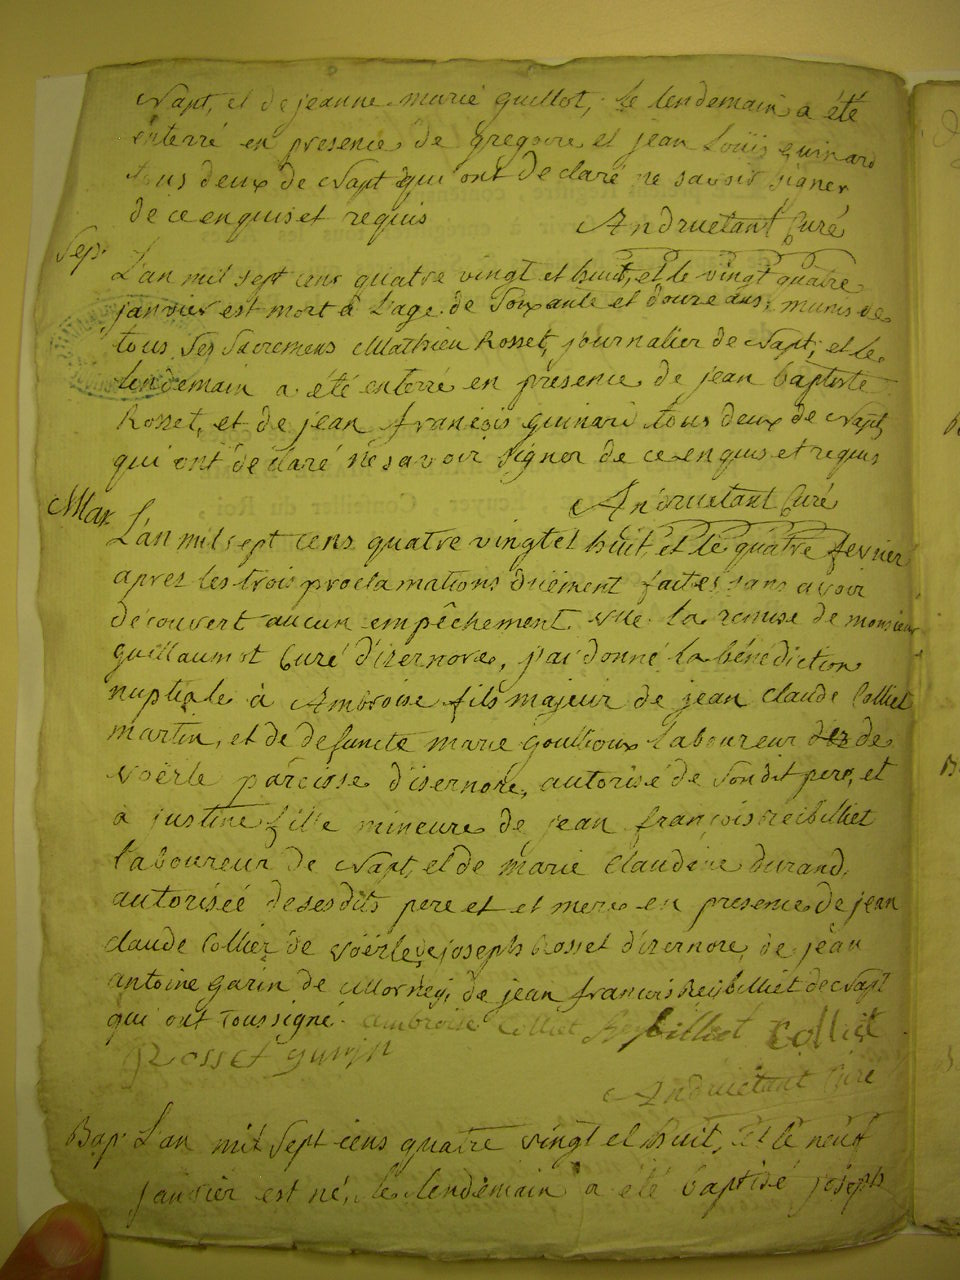 Napt, et de jeanne marie guillot, le lendemain a été
enterré en presence de gregoire et jean Loüis guinard
tous deux de Napt qui ont declaré ne savoir signer
de ce enquis et requis Andruetant Curé
Sep. L'an mil sept cens quatre vingt et huit, et le vingt quatre
janvier est mort à L'age de Soixante et douze ans, munis de
tous Ses Sacremens Mathieu Rosset, journalier de Napt, et le
lendemain a été enterré en presence de jean baptiste
Rosset, et de jean françois guinard tous deux de Napt
qui ont declaré ne savoir signer de ce enquis et requis
Andruetant Curé
Mar. L'an mil sept cens quatre vingt et huit, et le quatre fevrier
après les trois proclamations duément faites sans avoir
découvert aucun empêchement vue la remise de monsieur
guillaumot Curé d'izernore, j'ai donné la bénédiction
nuptiale à Ambroise fils majeur de jean claude Colliet
martin, et de defuncte marie goullioux laboureur de
Voërle paroisse d'isernore, autorisé de Son dit pere, et
a justine fille mineure de jean françois Reibilliet
laboureur de Napt, et de marie Claudine durand,
autorisée de ses dits pere et et mere en presence de jean
claude Colliet de Voërle, de joseph Rosset d'izernore, de jean
antoine garin de Mornay, de jean francois Reybilliet de Napt
qui ont Tous signé. ambroise Colliet Reybilliet Colliet
Rosset
Andruetant Curé
Bap. L'an mil Sept cens quatre vingt et huit, et le neuf
janvier est né, le lendemain a été baptisé joseph